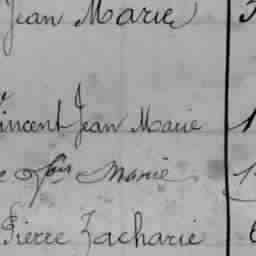 Jean Marie
Vincent Jean Marie
Marie
Pierre Zacharie